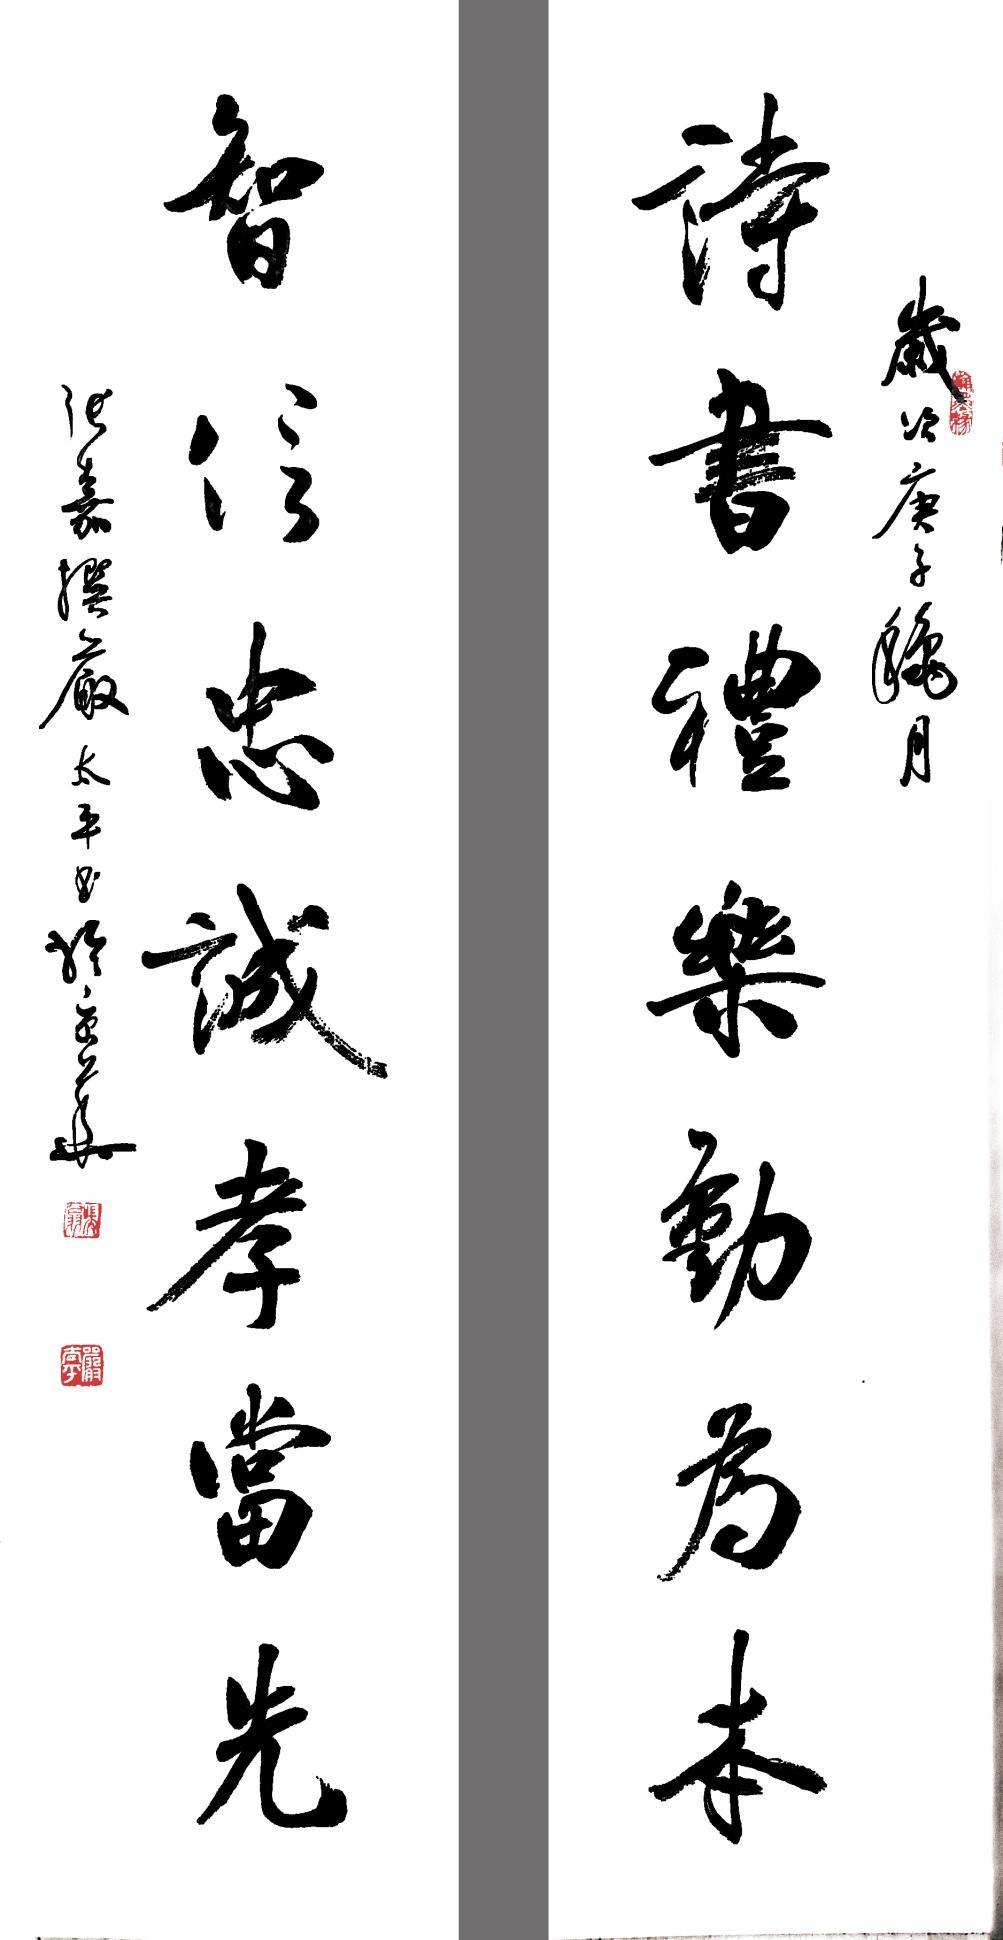 歲次庚子龝月
詩書禮樂勤為本
智信忠誠孝當先
張嘉撰嚴太平書於京華